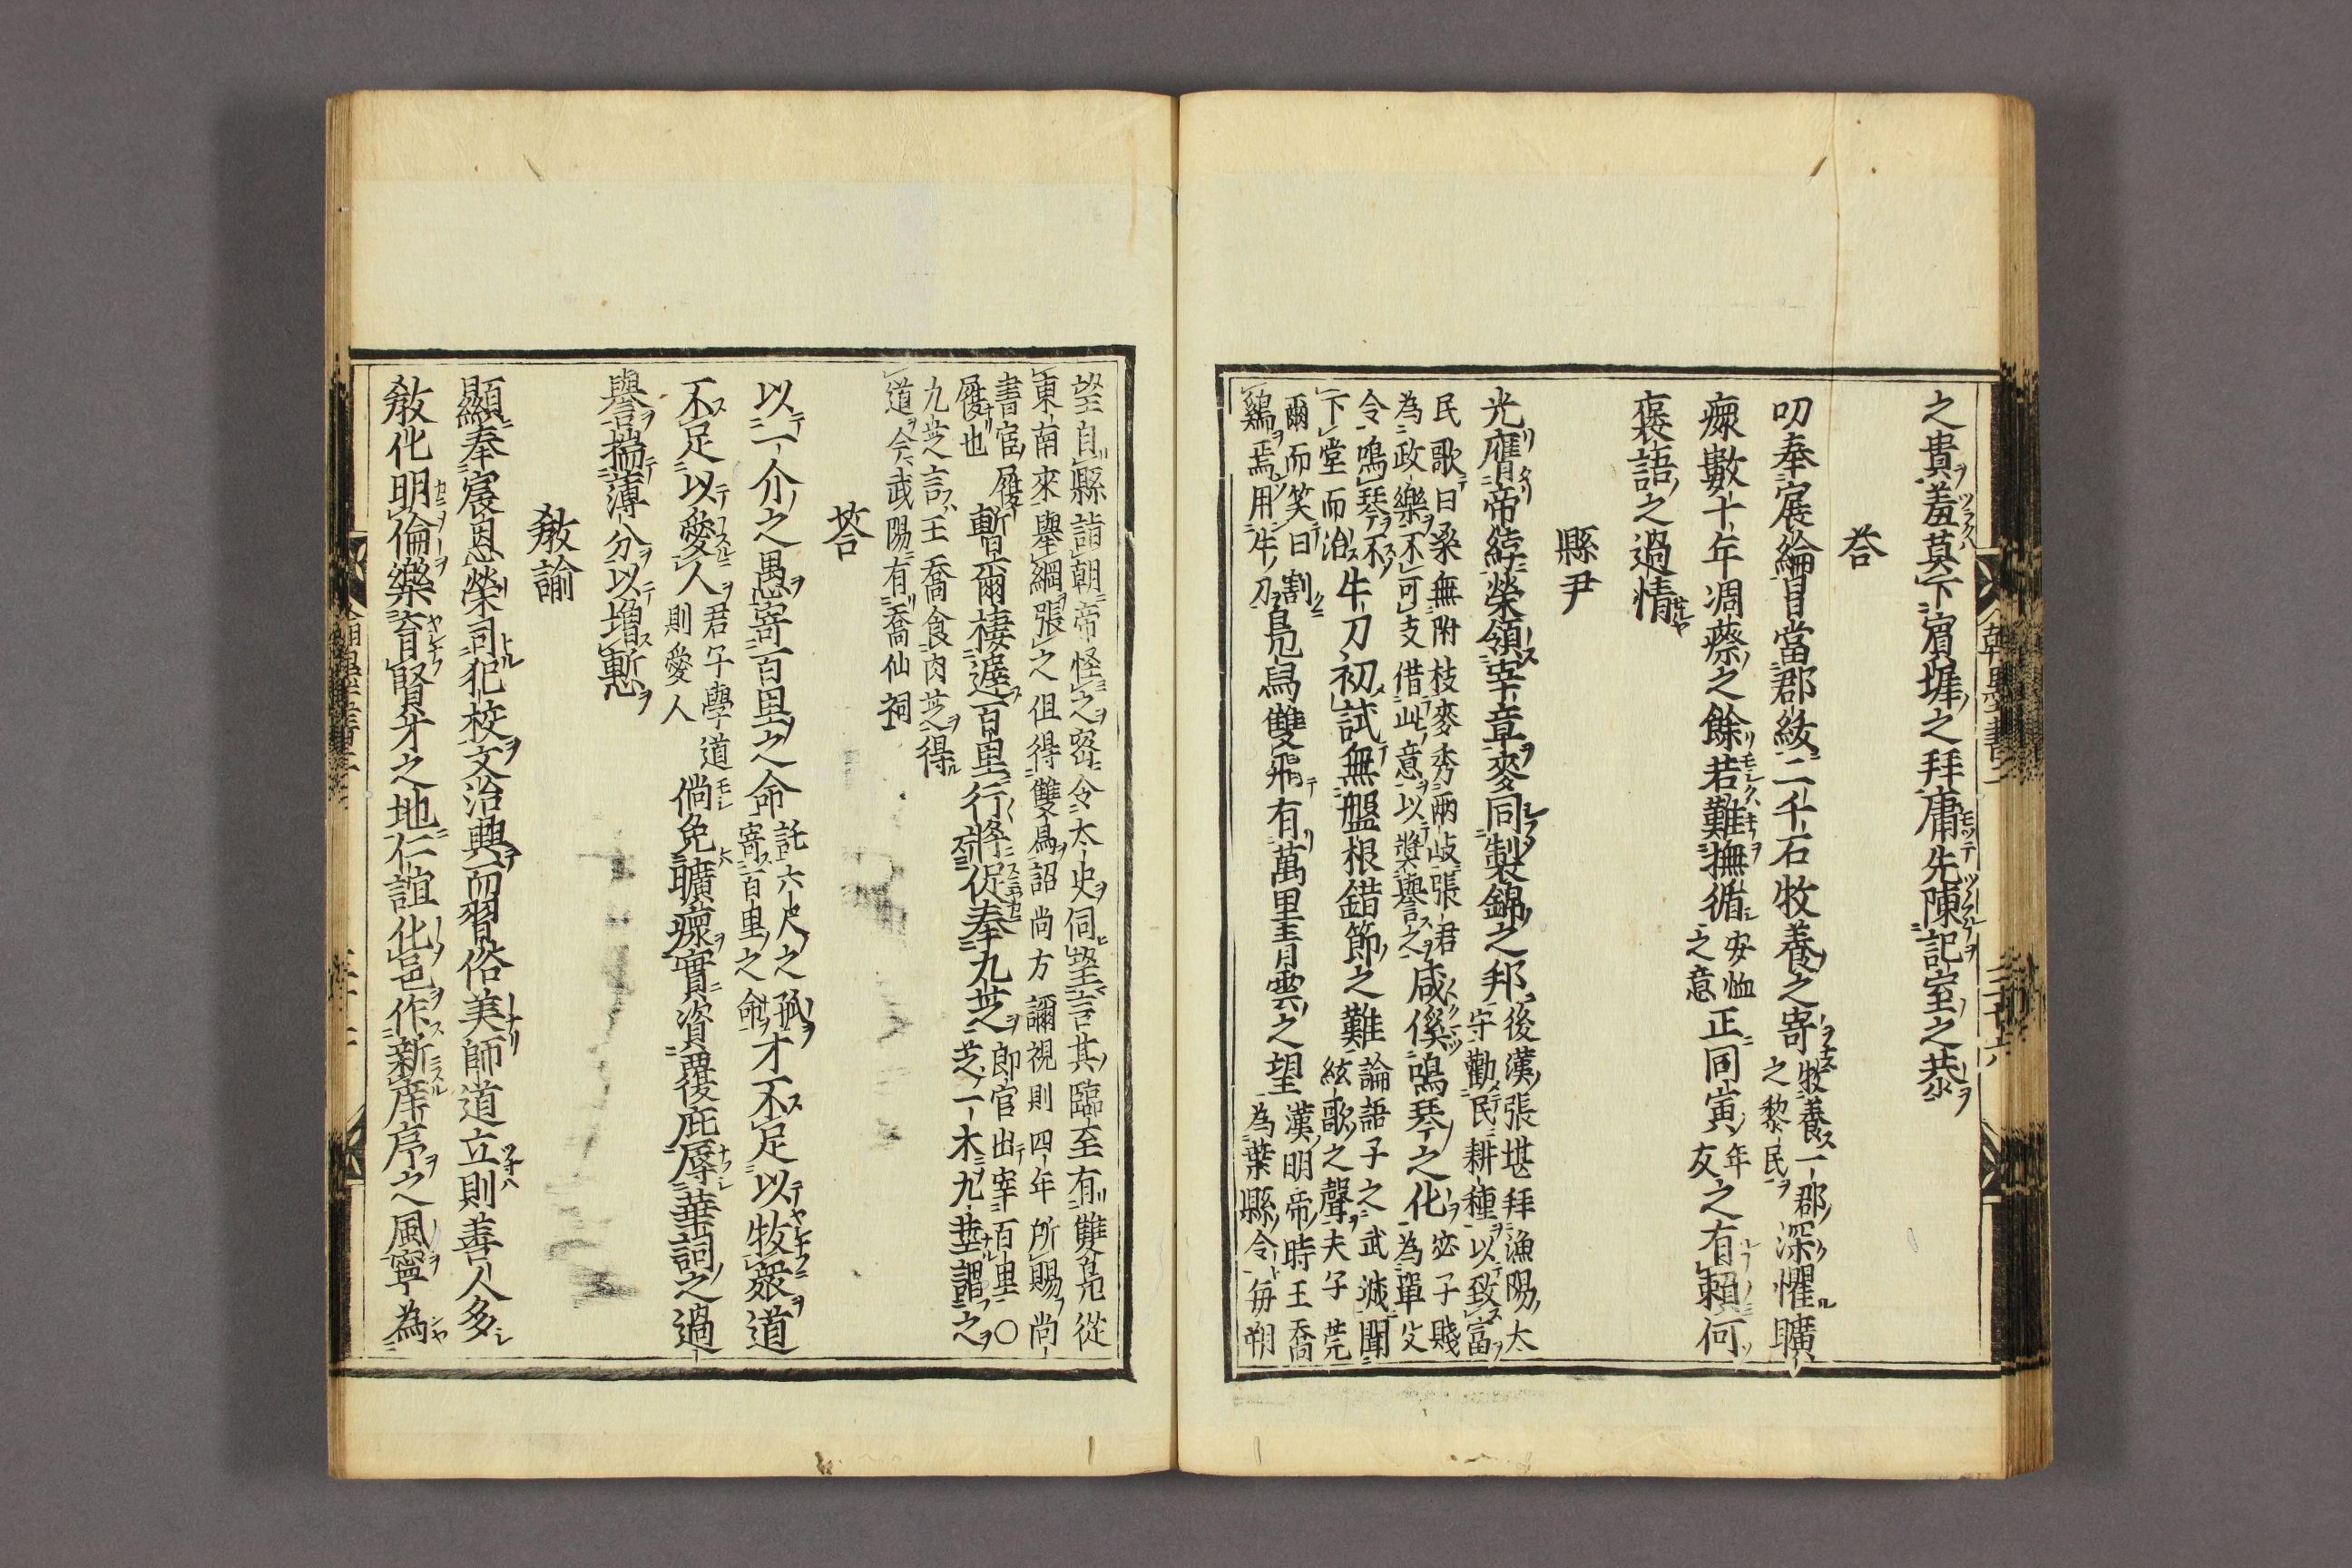 之貴羞莫下濵墀之拜庸先陳記室之恭
荅
叨奉宸綸目當郡紱二千石牧養之寄牧養一郡之黎民深懼曠
瘝數十年凋瘵之餘若難撫循安恤之意正同寅年友之有賴何
褒語之過情
縣尹
光膺帝綍榮領宰章麥同製錦之邦後漢張堪拜漁陽太
守勸民耕種以致富
民歌曰桑無附枝麥秀兩岐張君
為政樂不可支借此意以奬譽之咸傒鳴琴之化宓子賤
為單父
令鳴琴不
下堂而治牛刀初試無盤根錯節之難論語子之武城聞
絃歌之聲夫子莞
爾而笑曰割
鷄焉用牛刀鳬舄雙飛有萬里青雲之望漢明帝時王喬
為葉縣令每朔
望自縣詣朝帝怪之密令太史伺望言其臨至有雙鳬從
東南來舉綱張之但得雙舄詔尚方謂視則四年所賜尚
書官履
履也暫爾棲遲百里行將促奉九芝郎官出宰百里○
芝一木九莖謂之
九芝言王喬食肉芝得
道今武陽有喬仙祠
荅
以一介之愚寄百里之命託六尺之孤
寄百里之命才不足以牧衆道
不足以愛人君子學道
則愛人倘免曠瘝實資覆庇辱華詞之過
譽揣薄分以增慙
敎諭
顯奉宸恩榮司犯校文治興而習俗美師道立則善人多
敎化明倫樂育賢才之地仁誼化邑作新庠序之風寧為